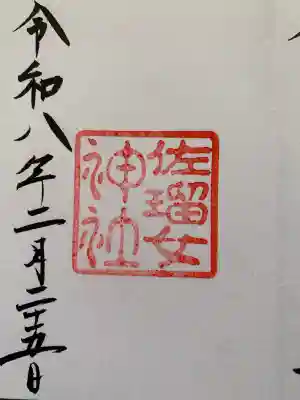 佐瑠女
神社
令和八年二月二十五日